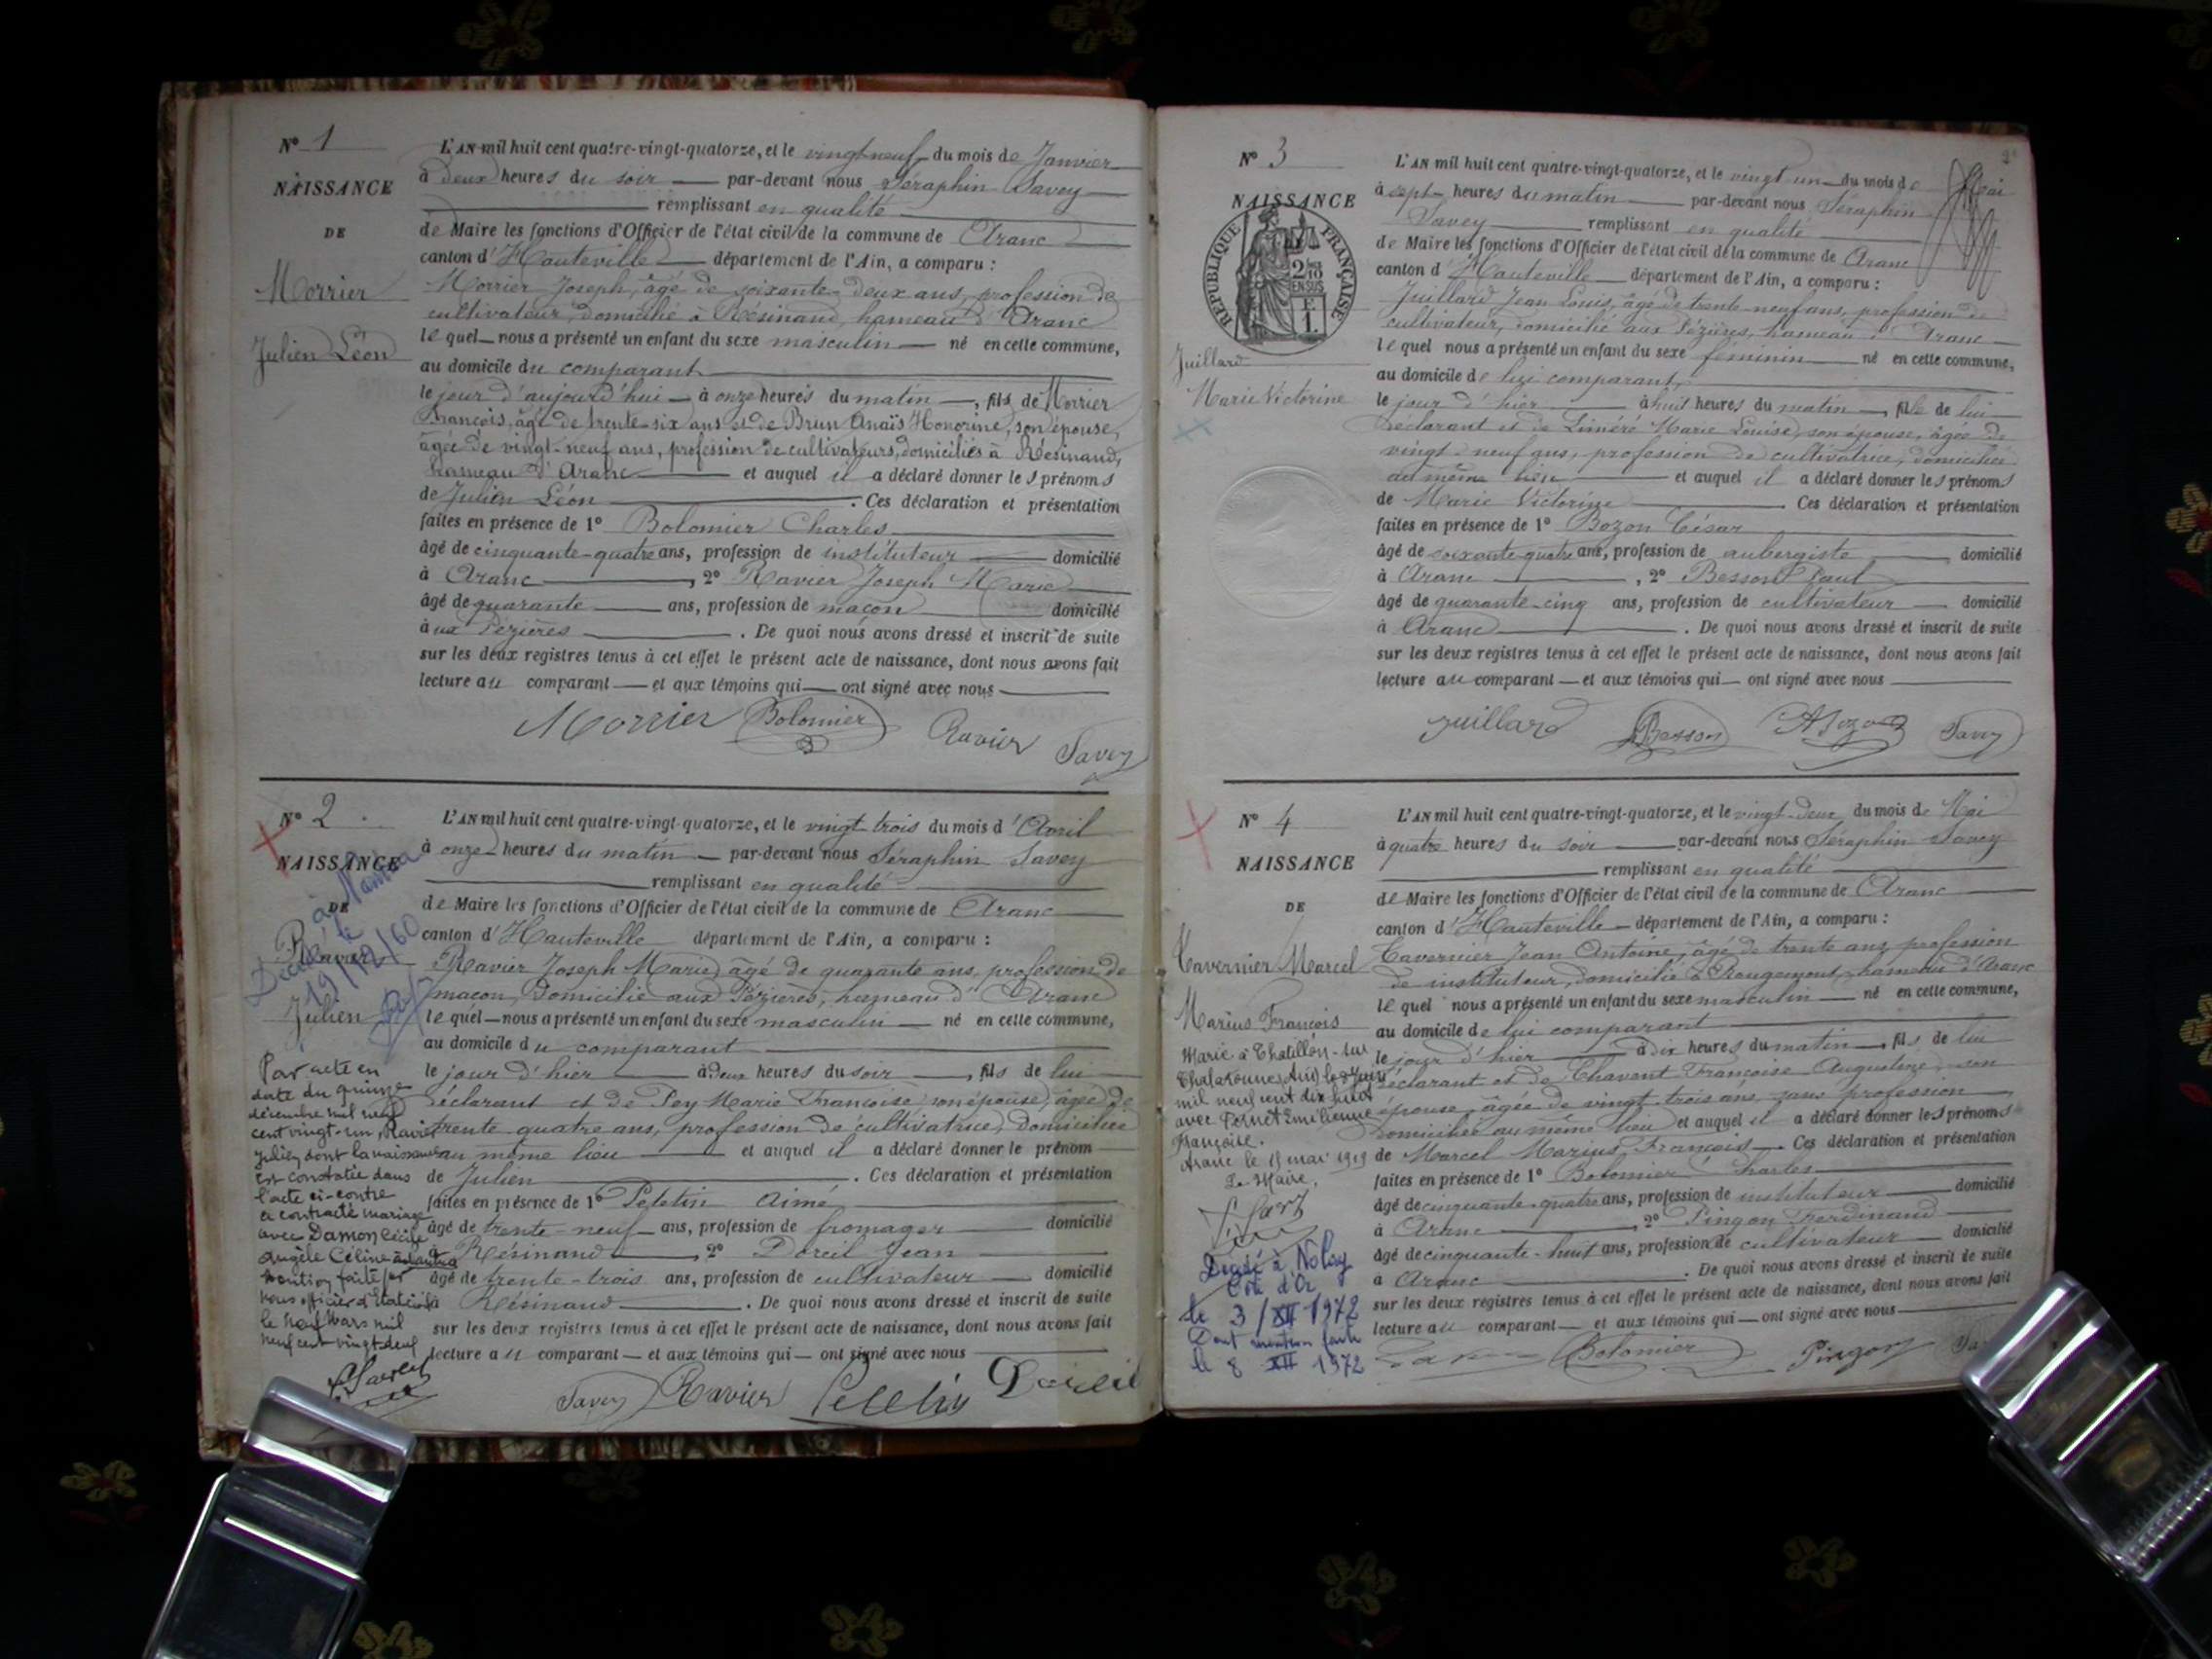 N° 1
NAISSANCE
DE
Morrier
Julien Léon
L'AN mil huit cent quatre-vingt-quatorze, et le vingt neuf du mois de Janvier
à deux heures du soir par-devant nous Séraphin Savey
remplissant en qualité
de Maire les fonctions d'Officier de l'état civil de la commune de Aranc
canton d'Hauteville département de l'Ain, a comparu :
Morrier Joseph, âgé de soixante-deux ans, profession de
cultivateur, domicilié à Résinand, hameau d'Aranc
lequel nous a présenté un enfant du sexe masculin né en cette commune,
au domicile du comparant
le jour d'aujourd'hui à onze heures du matin, fils de Morrier
François, âgé de trente-six ans et de Brun Anaïs Honorine, son épouse,
âgée de vingt-neuf ans, profession de cultivateurs, domiciliés à Résinand,
hameau d'Aranc et auquel il a déclaré donner les prénoms
de Julien Léon. Ces déclaration et présentation
faites en présence de 1° Bolomier Charles
âgé de cinquante-quatre ans, profession de instituteur domicilié
à Aranc, 2° Ravier Joseph Marie
âgé de quarante ans, profession de maçon domicilié
aux Pézières. De quoi nous avons dressé et inscrit de suite
sur les deux registres tenus à cet effet le présent acte de naissance, dont nous avons fait
lecture au comparant et aux témoins qui ont signé avec nous
Morrier Bolomier Ravier Savey
N° 2
NAISSANCE
DE
Ravier
Julien
Décédé à Nantua
le
19/12/60
Par acte en
date du quinze
décembre mil neuf
cent vingt-un, Ravier
Julien dont la naissance
est constatée dans
l'acte ci-contre
a contracté mariage
avec Damon Cécile
Angèle Céline à Nantua
Mention faite par
nous officier d'état civil
le neuf Mars mil
neuf cent vingt deux
L'AN mil huit cent quatre-vingt-quatorze, et le vingt trois du mois d'Avril
à onze heures du matin par-devant nous Séraphin Savey
remplissant en qualité
de Maire les fonctions d'Officier de l'état civil de la commune de Aranc
canton d'Hauteville département de l'Ain, a comparu :
Ravier Joseph Marie, âgé de quarante ans, profession de
maçon, domicilié aux Pézières, hameau d'Aranc
lequel nous a présenté un enfant du sexe masculin né en cette commune,
au domicile du comparant
le jour d'hier à deux heures du soir, fils de lui
déclarant et de Pey Marie Françoise, son épouse, âgée de
trente quatre ans, profession de cultivatrice, domiciliée
au même lieu et auquel il a déclaré donner le prénom
de Julien. Ces déclaration et présentation
faites en présence de 1° Peletin Aimé
âgé de trente-neuf ans, profession de fromager domicilié
à Résinand, 2° Doreil Jean
âgé de trente-trois ans, profession de cultivateur domicilié
à Résinand. De quoi nous avons dressé et inscrit de suite
sur les deux registres tenus à cet effet le présent acte de naissance, dont nous avons fait
lecture au comparant et aux témoins qui ont signé avec nous
Savey Ravier Peletin Doreil
N° 3
NAISSANCE
RÉPUBLIQUE FRANÇAISE
2/10 EN SUS
Juillard
Marie Victorine
L'AN mil huit cent quatre-vingt-quatorze, et le vingt un du mois de Mai
à sept heures du matin par-devant nous Séraphin
Savey remplissant en qualité
de Maire les fonctions d'Officier de l'état civil de la commune de Aranc
canton d'Hauteville département de l'Ain, a comparu :
Juillard Jean Louis, âgé de trente neuf ans, profession de
cultivateur, domicilié aux Pézières, hameau d'Aranc
lequel nous a présenté un enfant du sexe féminin né en cette commune,
au domicile de lui comparant,
le jour d'hier à huit heures du matin, fille de lui
déclarant et de Liméré Marie Louise, son épouse, âgée de
vingt neuf ans, profession de cultivatrice, domiciliée
au même lieu et auquel il a déclaré donner les prénoms
de Marie Victorine. Ces déclaration et présentation
faites en présence de 1° Bozon César
âgé de soixante quatre ans, profession de aubergiste, domicilié
à Aranc, 2° Besson Paul
âgé de quarante-cinq ans, profession de cultivateur domicilié
à Aranc. De quoi nous avons dressé et inscrit de suite
sur les deux registres tenus à cet effet le présent acte de naissance, dont nous avons fait
lecture au comparant et aux témoins qui ont signé avec nous
Juillard Besson Bozon Savey
N° 4
NAISSANCE
DE
Tavernier Marcel
Marius François
Marié à Chatillon-sur
Chalaronne (Ain) le
mil neuf cent dix huit
avec Pernet Emilienne
Françoise.
Aranc le 19 mai 1919
Le Maire,
Décédé à Nolay
Côte d'Or
le 3/XII 1972
Dont mention faite
le 8 XII 1972
L'AN mil huit cent quatre-vingt-quatorze, et le vingt-deux du mois de Mai
à quatre heures du soir par-devant nous Séraphin Savey
remplissant en qualité
de Maire les fonctions d'Officier de l'état civil de la commune de Aranc
canton d'Hauteville département de l'Ain, a comparu :
Tavernier Jean Antoine, âgé de trente ans, profession
de instituteur, domicilié à Rougemont, hameau d'Aranc
lequel nous a présenté un enfant du sexe masculin né en cette commune,
au domicile de lui comparant
le jour d'hier à dix heures du matin, fils de lui
déclarant et de Chavent Françoise Augustine, son
épouse, âgée de vingt-trois ans, sans profession
domiciliée au même lieu et auquel il a déclaré donner les prénoms
de Marcel Marius François. Ces déclaration et présentation
faites en présence de 1° Bolomier Charles
âgé de cinquante-quatre ans, profession de instituteur domicilié
à Aranc, 2° Pingon Ferdinand
âgé de cinquante-huit ans, profession de cultivateur domicilié
à Aranc. De quoi nous avons dressé et inscrit de suite
sur les deux registres tenus à cet effet le présent acte de naissance, dont nous avons fait
lecture au comparant et aux témoins qui ont signé avec nous
Bolomier Pingon